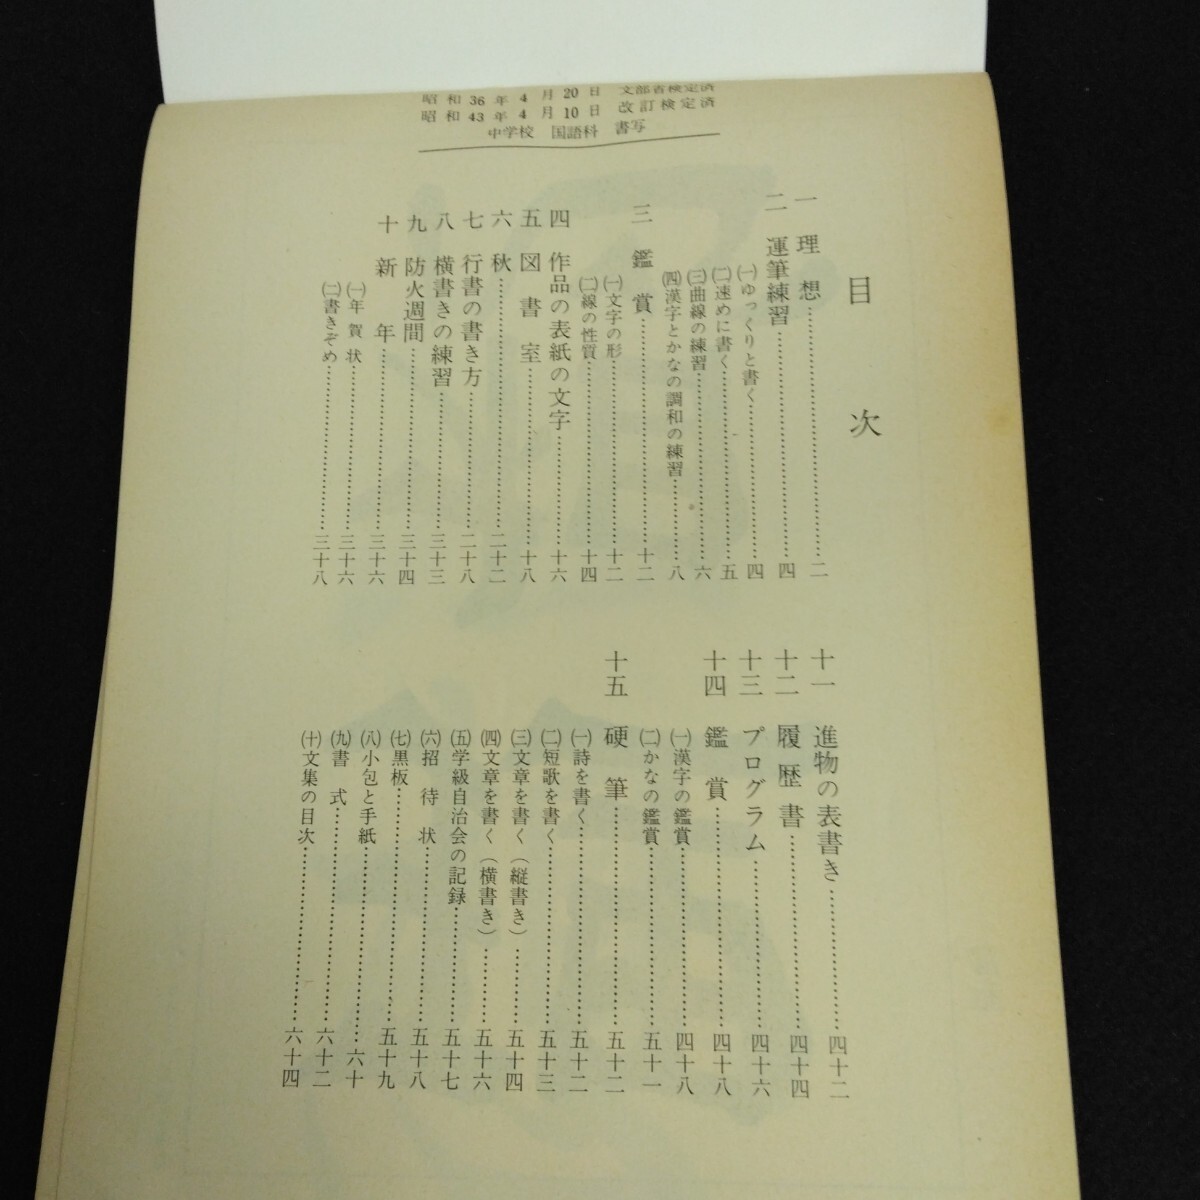 昭和36年4月20日 文部省検定済
昭和43年4月10日 改訂検定済
中学校 国語科 書写
目次
一 理想……………二
二 運筆練習……………四
㈠ゆっくりと書く……………四
㈡速めに書く……………五
㈢曲線の練習……………六
㈣漢字とかなの調和の練習……………八
三 鑑賞……………十二
㈠文字の形……………十二
㈡線の性質……………十四
四 作品の表紙の文字……………十六
五 図書室……………十八
六 秋……………二十二
七 行書の書き方……………二十八
八 横書きの練習……………三十三
九 防火週間……………三十四
十 新年……………三十六
㈠年賀状……………三十六
㈡書きぞめ……………三十八
十一 進物の表書き……………四十二
十二 履歴書……………四十四
十三 プログラム……………四十六
十四 鑑賞……………四十八
㈠漢字の鑑賞……………四十八
㈡かなの鑑賞……………五十一
十五 硬筆……………五十二
㈠詩を書く……………五十二
㈡短歌を書く……………五十三
㈢文章を書く（縦書き）……………五十四
㈣文章を書く（横書き）……………五十六
㈤学級自治会の記録……………五十七
㈥招待状……………五十八
㈦黒板……………五十九
㈧小包と手紙……………六十
㈨書式……………六十二
㈩文集の目次……………六十四